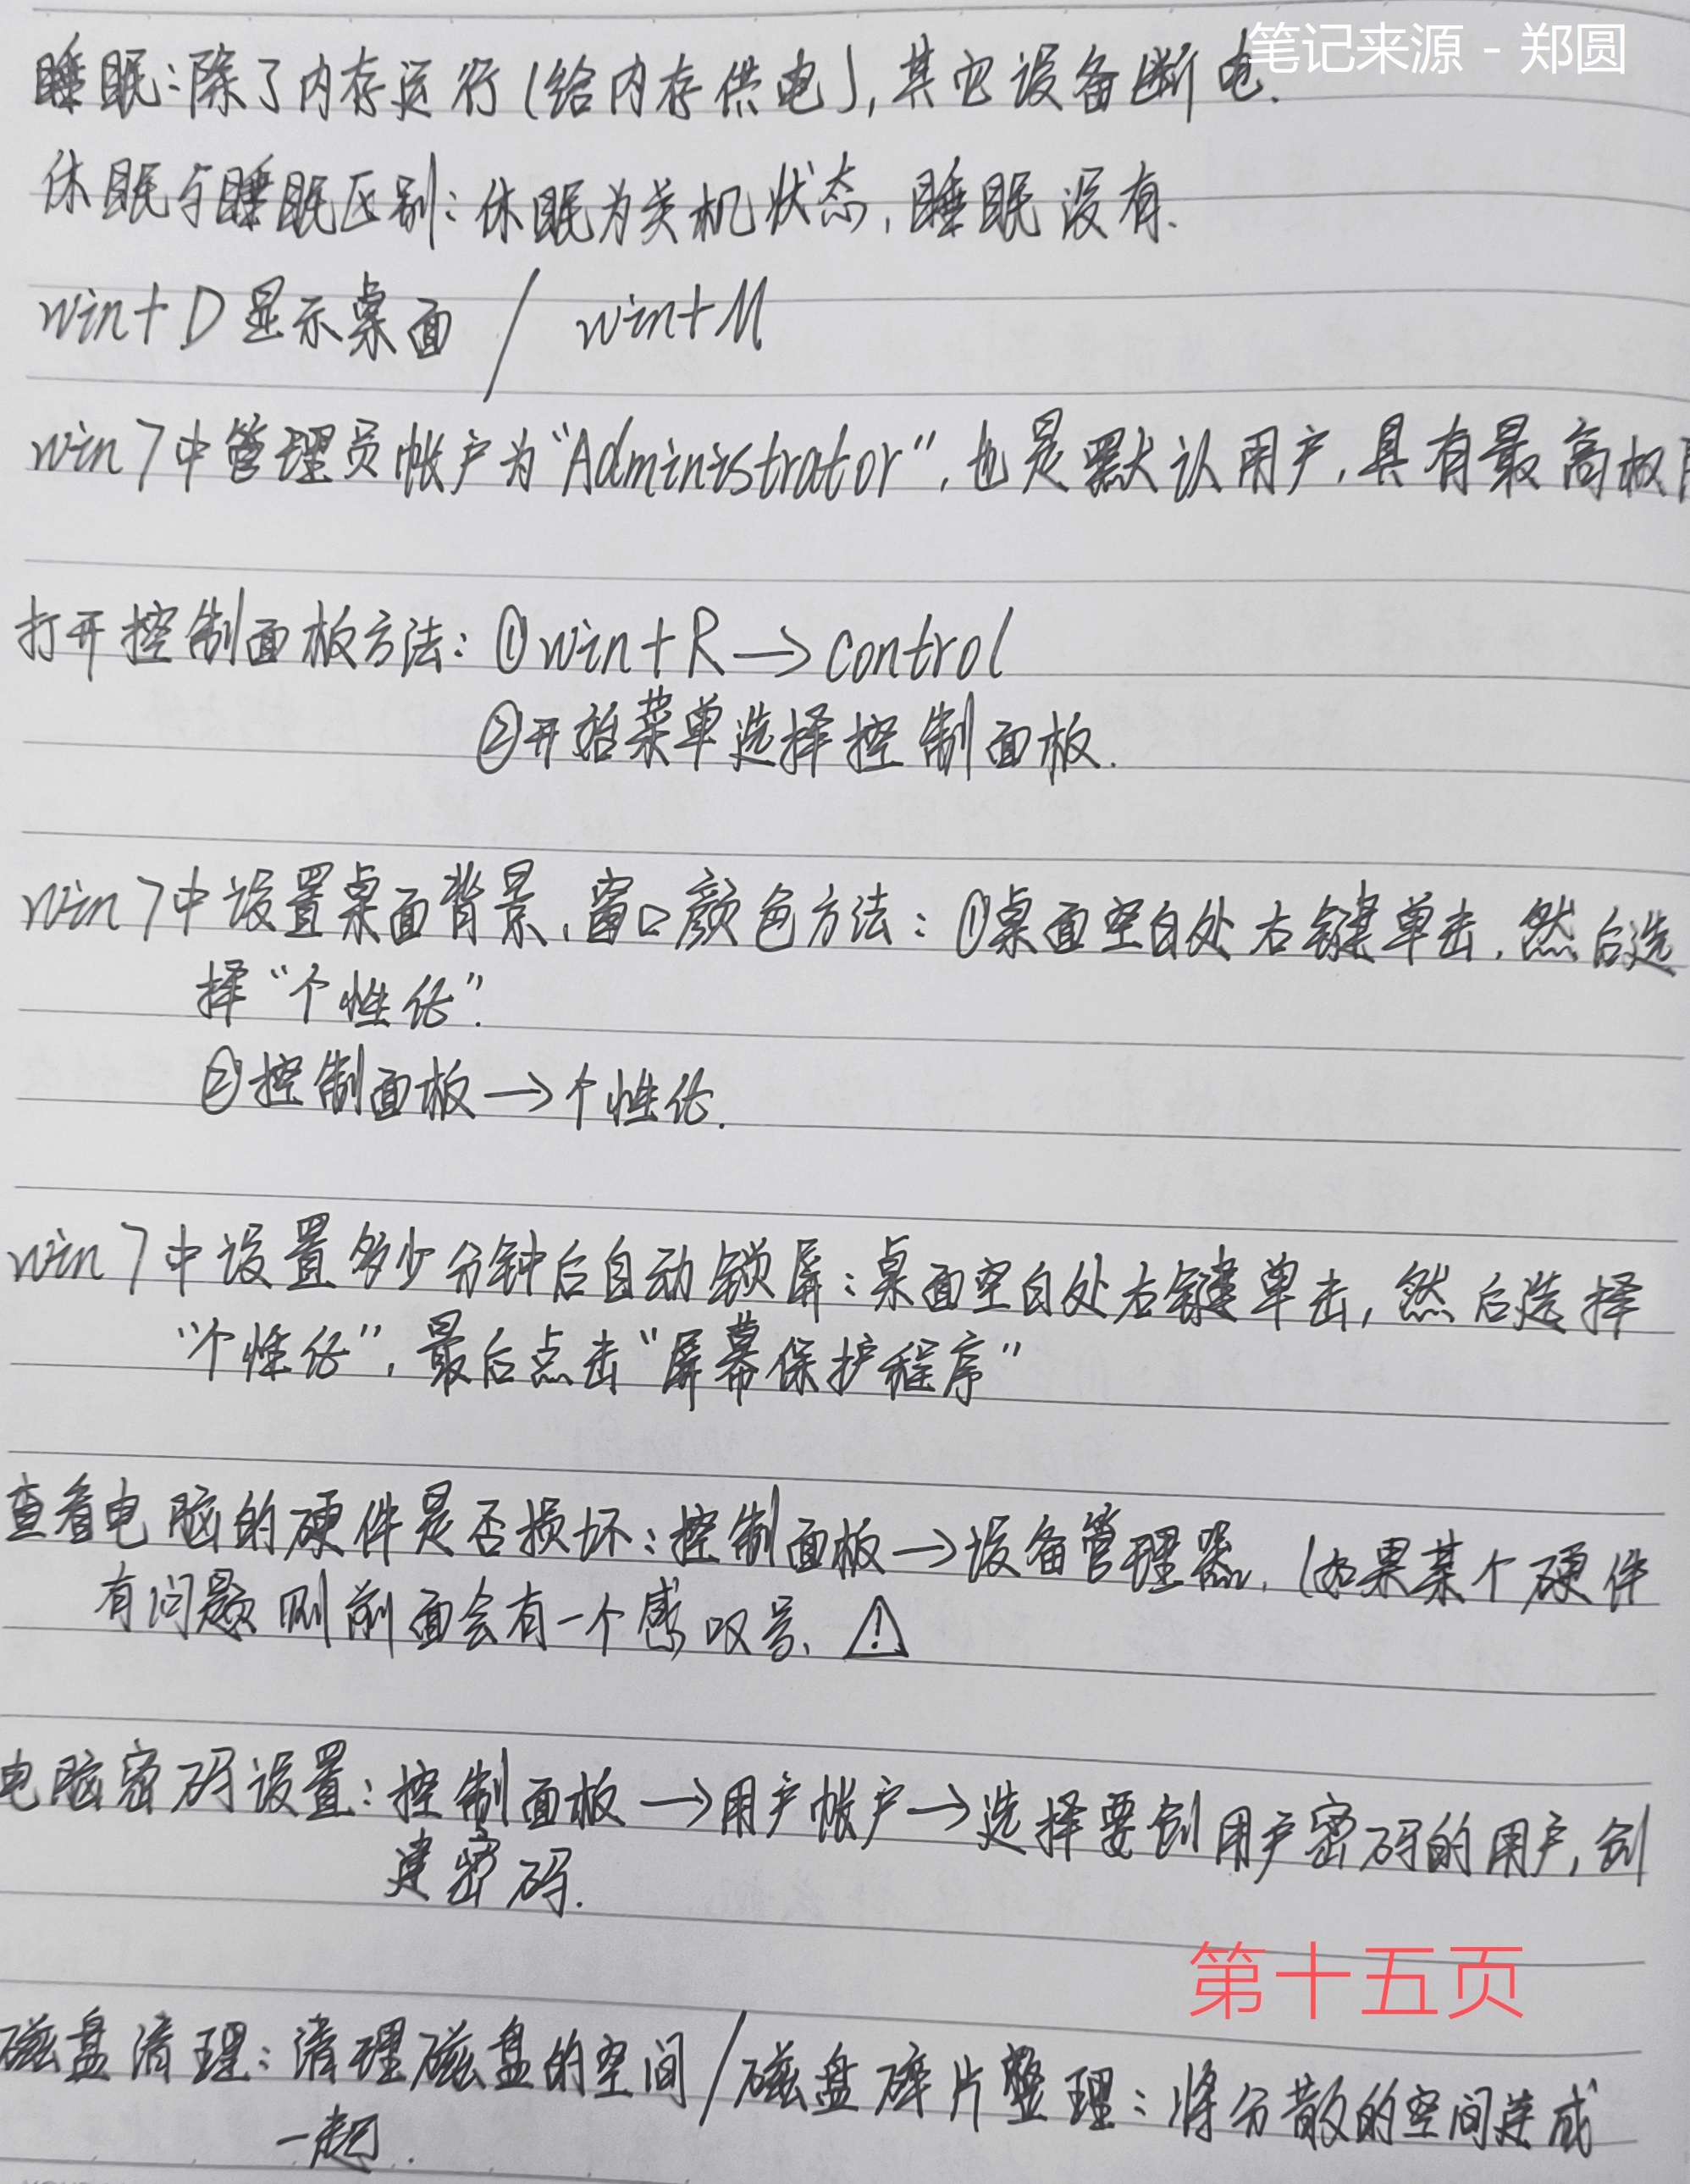 笔记来源 - 郑圆
睡眠:除了内存运行(给内存供电),其它设备断电.
休眠与睡眠区别:休眠为关机状态,睡眠没有.
win+D显示桌面 / win+M
win7中管理员帐户为“Administrator”,也是默认用户,具有最高权
打开控制面板方法:①win+R→control
②开始菜单选择控制面板.
win7中设置桌面背景、窗口颜色方法:①桌面空白处右键单击,然后选
择“个性化”.
②控制面板→个性化.
win7中设置多少分钟后自动锁屏:桌面空白处右键单击,然后选择
“个性化”,最后点击“屏幕保护程序”
查看电脑的硬件是否损坏:控制面板→设备管理器,(如果某个硬件
有问题则前面会有一个感叹号、⚠
电脑密码设置:控制面板→用户帐户→选择要创用户密码的用户,创
建密码.
第十五页
磁盘清理:清理磁盘的空间/磁盘碎片整理:将分散的空间连成
一起.